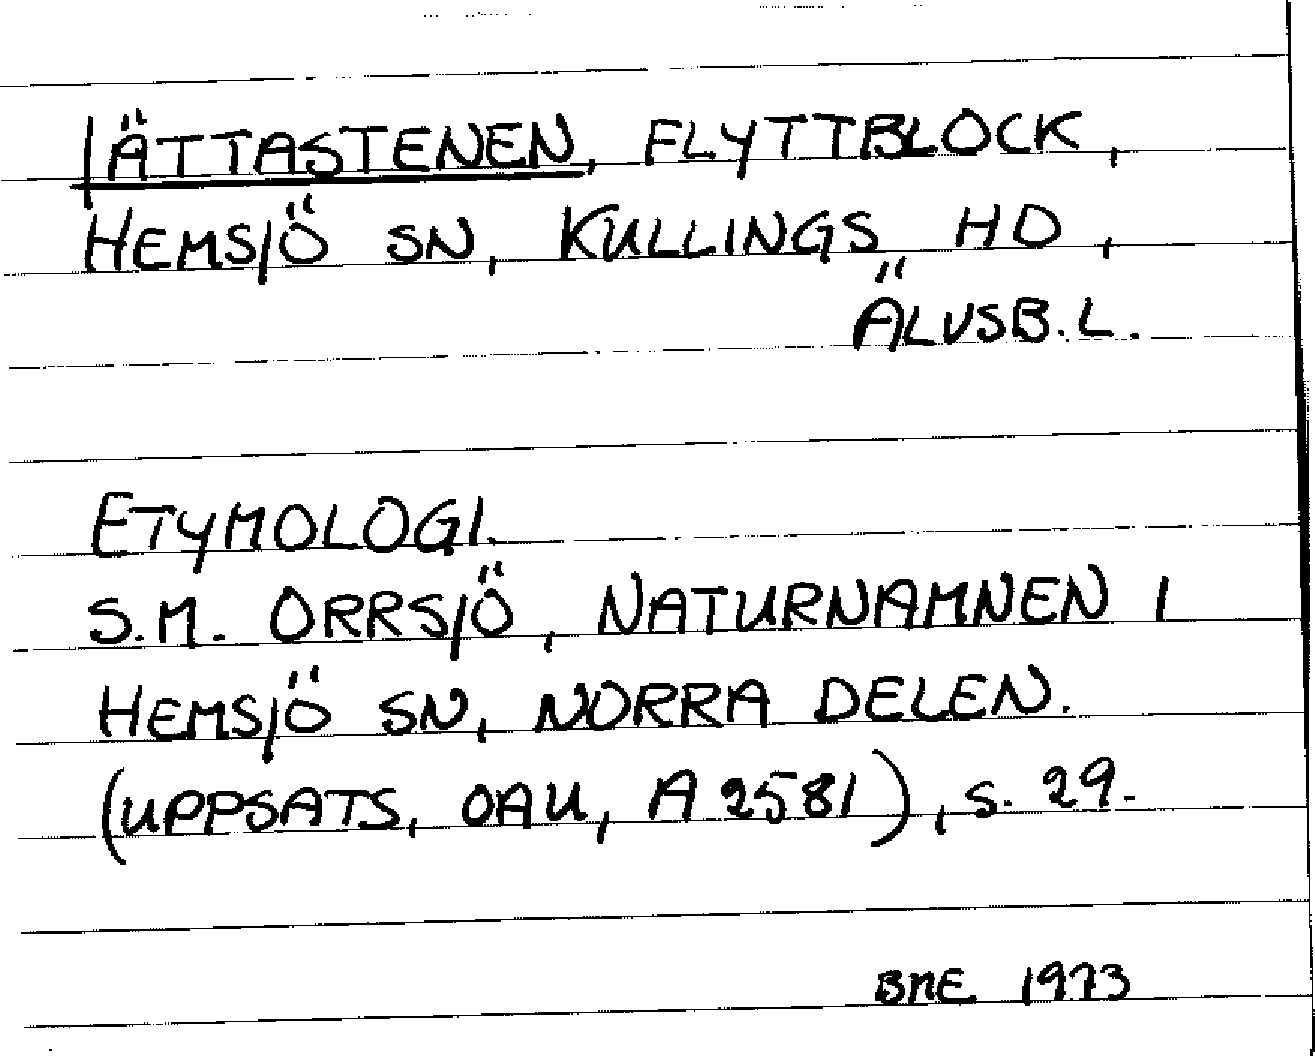 JÄTTASTENEN, FLYTTBLOCK,
HEMSJÖ SN, KULLINGS HD,
ÄLVSB. L.
ETYMOLOGI.
S.M. ORRSJÖ, NATURNAMNEN I
HEMSJÖ SN, NORRA DELEN.
(UPPSATS, OAU, A 2581), S. 29.
BME 1973